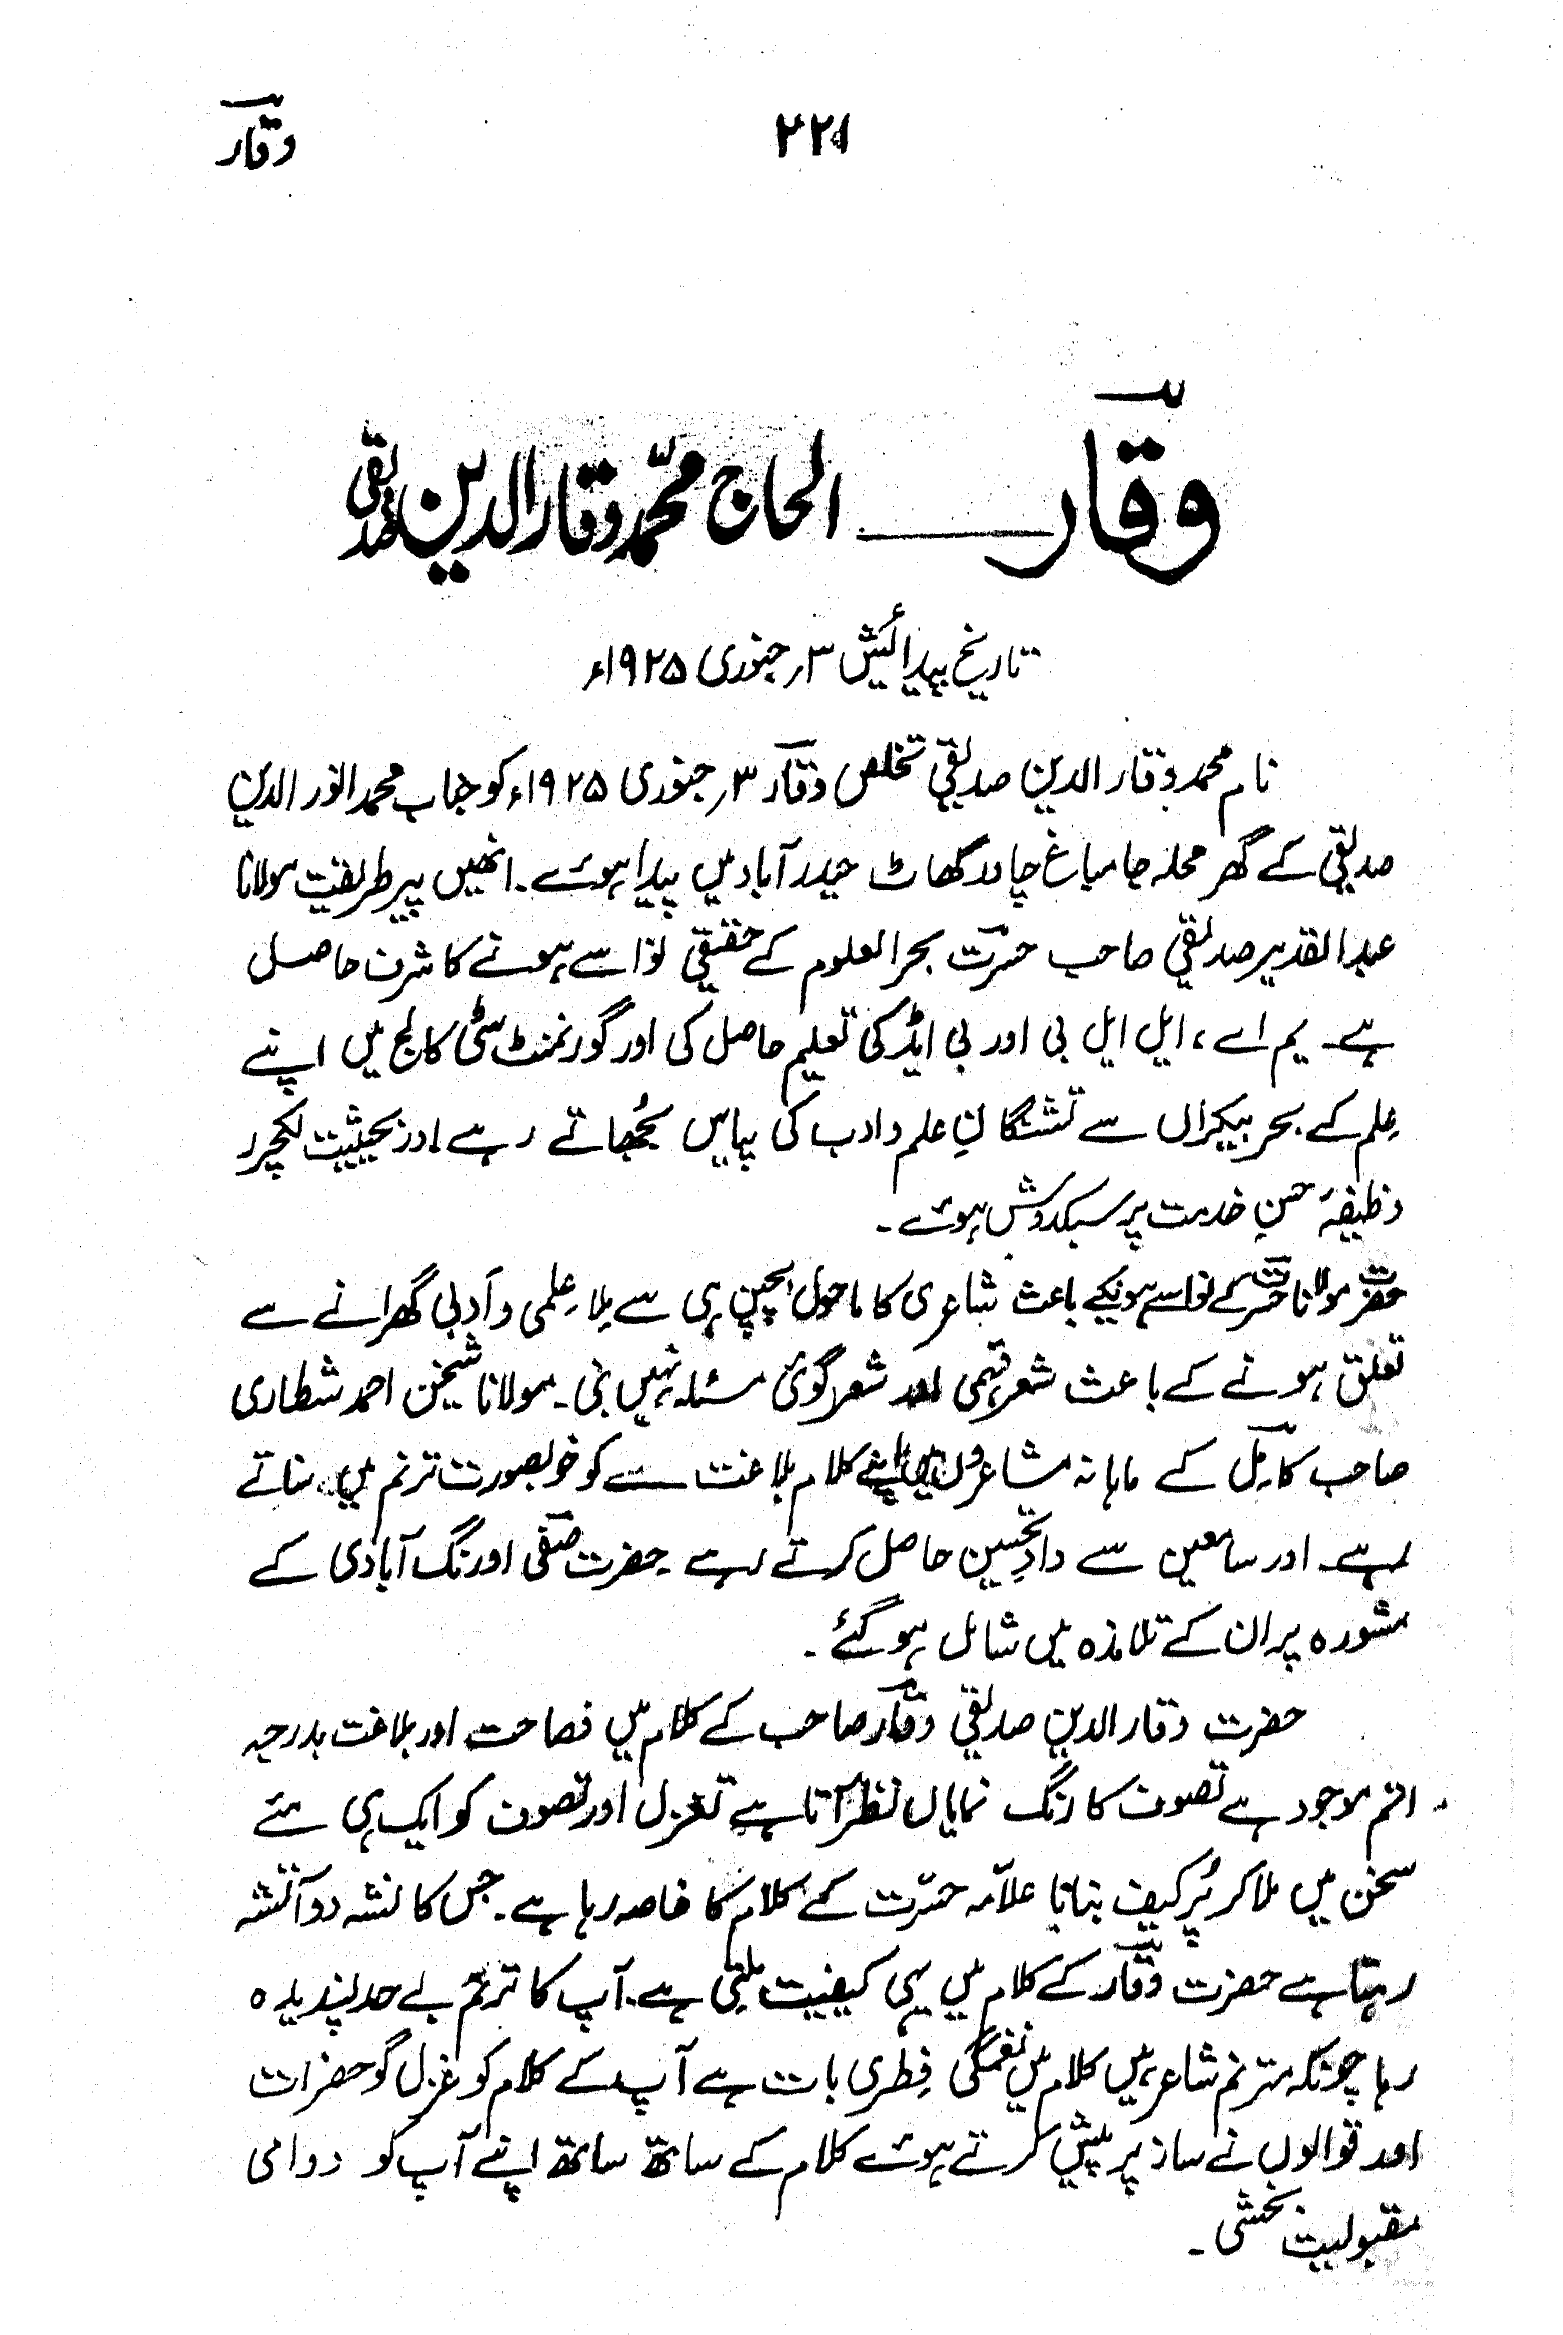 وقارؔ
۲۲۱
وقارؔ ـــــ الحاج محمّد وقار الدین صدیقی
تاریخ پیدائیش ۳؍ جنوری ۱۹۲۵ء
نام محمد وقار الدین صدیقی تخلص وقارؔ ۳؍ جنوری ۱۹۲۵ء کو جناب محمد انور الدین
صدیقی کے گھر محلہ جامباغ چادر گھاٹ حیدر آباد میں پیدا ہوئے۔ انھیں پیر طریقت مولانا
عبدالقدیر صدیقی صاحب حسرتؔ بحر العلوم کے حقیقی نواسے ہونے کا شرف حاصل
ہے۔ یم اے، ایل ایل بی اور بی ایڈ کی تعلیم حاصل کی اور گورنمنٹ سٹی کالج میں اپنے
عِلم کے بحر بیکراں سے تشنگانِ علم و ادب کی پیاس بُجھاتے رہے اور بحیثیت لکچرر
وظیفۂ حسنِ خدمت پر سبکدوش ہوئے۔
حضرت مولانا حسرتؔ کے نواسے ہونیکے باعث شاعری کا ماحول بچپن ہی سے مِلا۔ عِلمی و اَدبی گھرانے سے
تعلق ہونے کے باعث شعر فہمی اور شعر گوئی مسئلہ نہیں بنی۔ مولانا شیخن احمد شطاری
صاحب کاملؔ کے ماہانہ مشاعروں میں اپنے کلام بلاغت سے کو خوبصورت ترنم میں سناتے
رہے۔ اور سامعین سے دادِ تحسین حاصل کرتے رہے۔ حضرت صفیؔ اورنگ آبادی کے
مشورہ پر ان کے تلامذہ میں شامل ہوگئے۔
حضرت وقار الدین صدیقی وقارؔ صاحب کے کلام میں فصاحت اور بلاغت بدرجہ
اتم موجود ہے تصوف کا رنگ نمایاں نظر آتا ہے تغزل اور تصوف کو ایک ہی مئے
سخن میں ملا کر پُر کیف بنانا علاّمہ حسرتؔ کے کلام کا خاصہ رہا ہے۔ جس کا نشہ دو آتشہ
رہتا ہے حضرت وقارؔ کے کلام میں یہی کیفیت ملتی ہے۔ آپ کا ترنّم بے حد پسندیدہ
رہا چونکہ مترنم شاعر ہیں کلام میں نغمگی فِطری بات ہے آپ کے کلام کو غزل گو حضرات
اور قوالوں نے ساز پر پیش کرتے ہوئے کلام کے ساتھ ساتھ اپنے آپ کو دوامی
مقبولیت بخشی۔